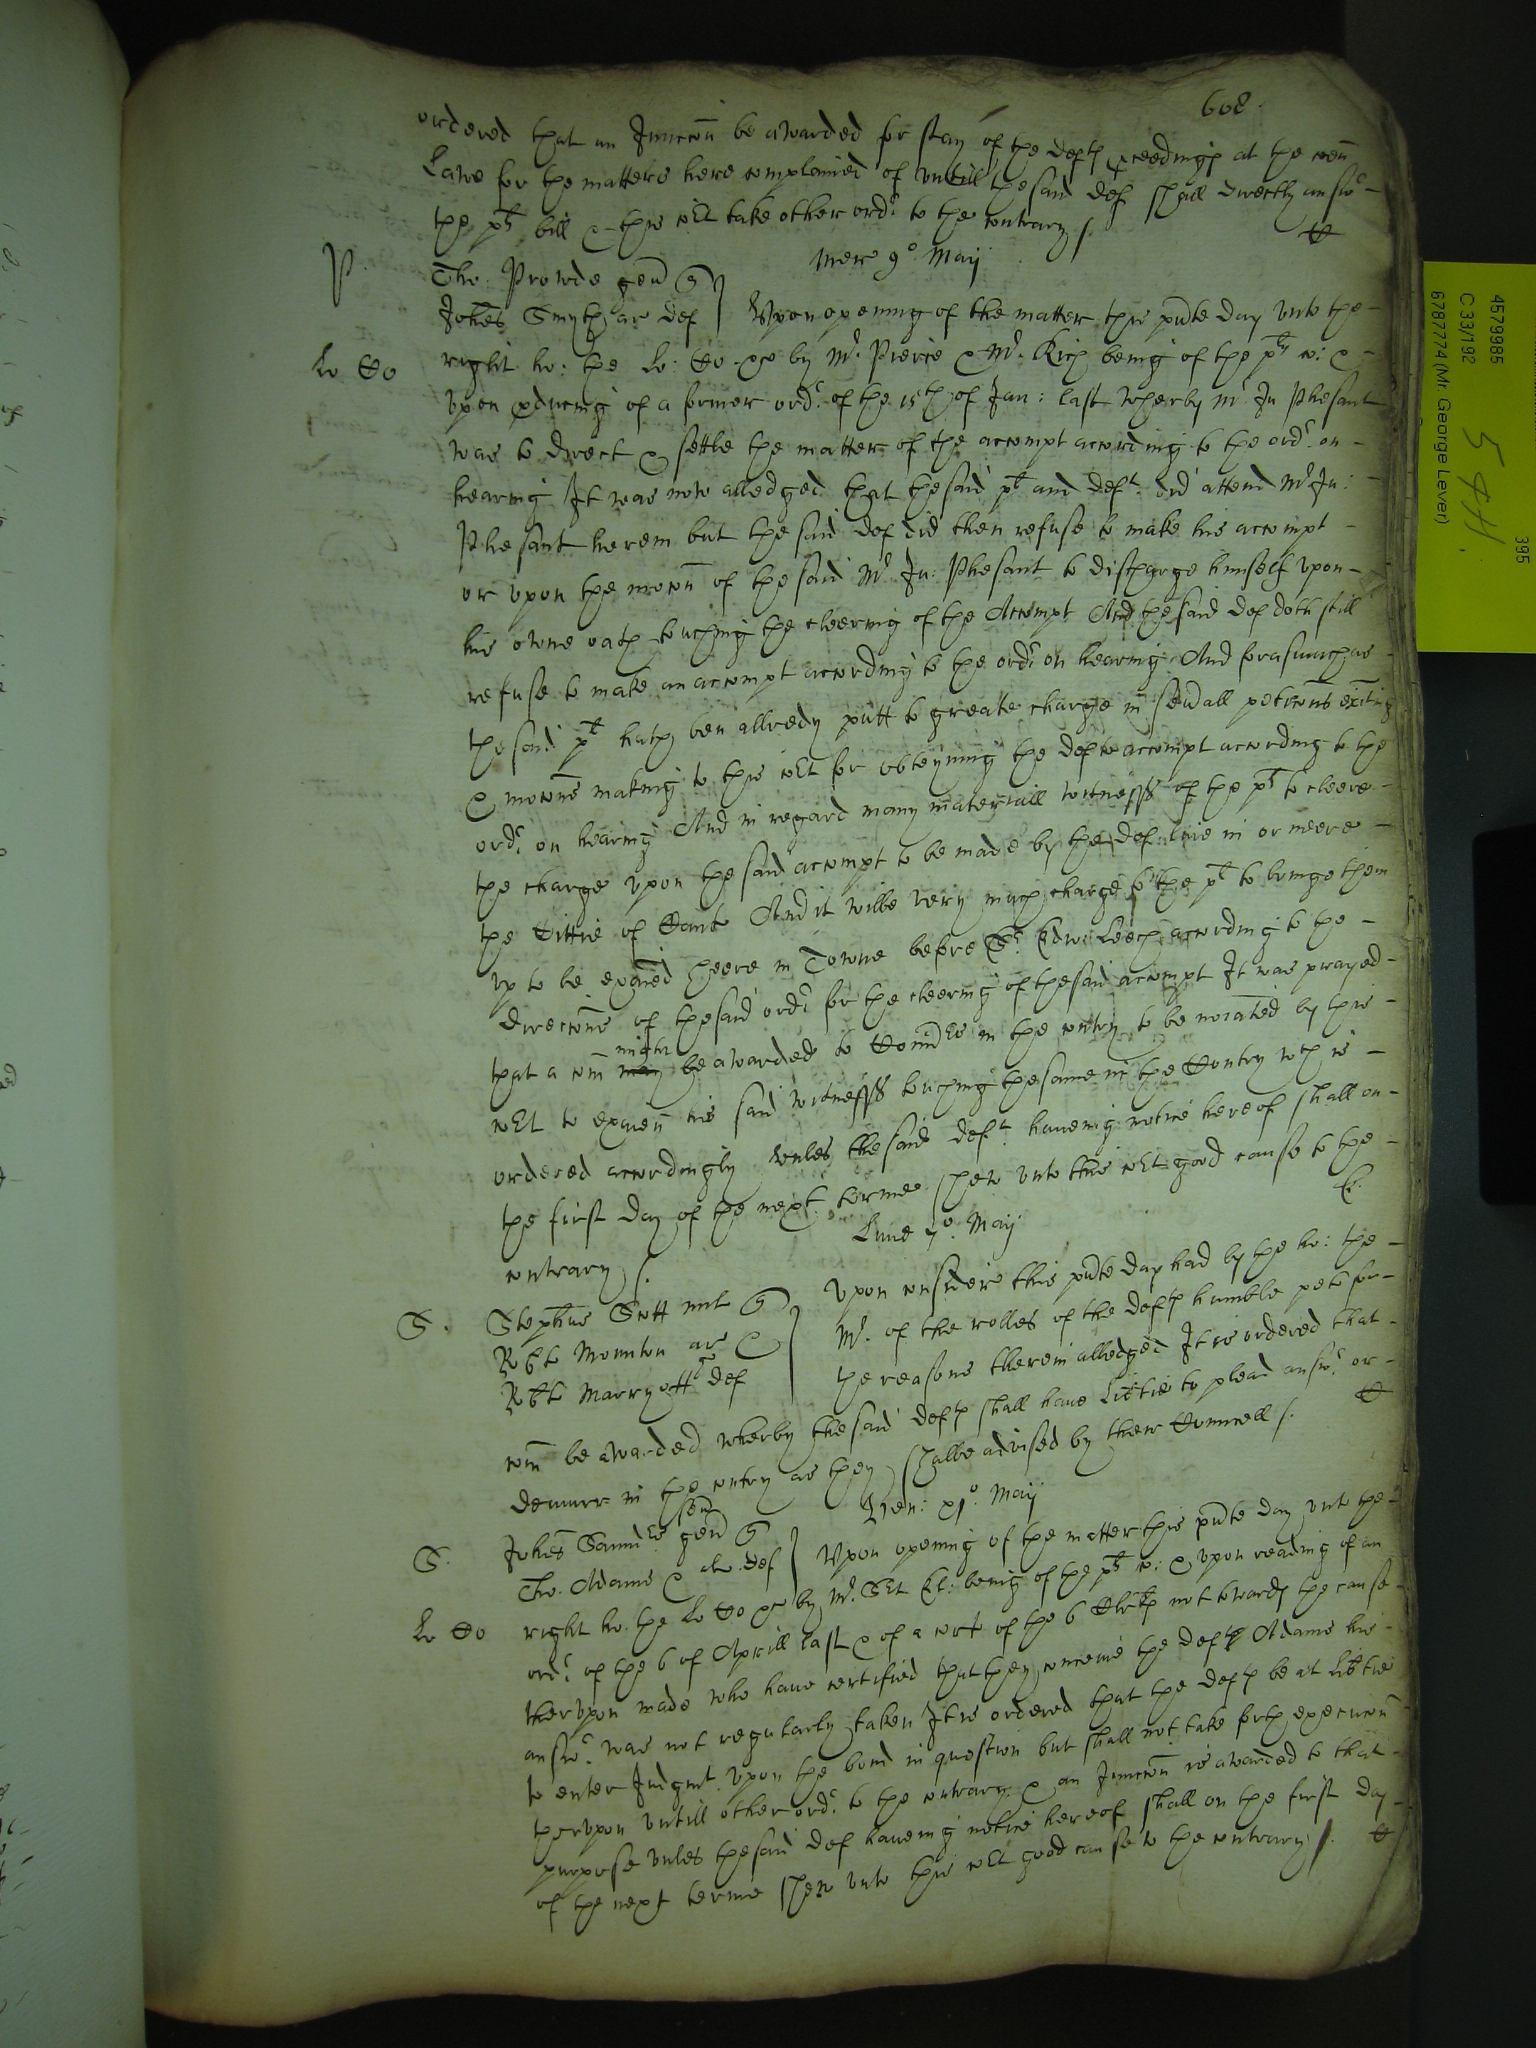 608.
ordered that an Iniuncon be awarded for stay of the defts pceedings at the coen
Lawe for the matters here complained of vntill the said def shall directly answr
the plts bill & this cort take other ordr to the contrary /.
Mer 9o Maij
P.
Tho. Prowde gen q
Johes Smyth ar def } Vpon opening of the matter this pnte day vnto the
Lo Co
right ho: the Lo: Co &c by Mr. Pierce & Mr. Rich being of the plts co: &
vpon pducing of a former ordr of the 15th of Jan: last wherby Mr Ju Phesant
was to direct & settle the matter of the accompt according to the ordr on
hearing It was now alledged that the said plt and deft. did attend Mr Ju:
Phesant herein but the said def did then refuse to make his accompt
or vpon the mocon of the said Mr Ju: Phesant to discharge himself vpon
his owne oath touching the cleering of the Accompt And the said def doth still
refuse to make an accompt according to the ordr on hearing And forasmuch as
the said plt hath ben allredy putt to greate charge in seuall peticons
& mocons making to this cort for obteyning the def to accompt according to the
ordr on hearing And in regard many materiall witnesses of the plts to cleere
the charge vpon the said accompt to be made by the def liue in or neere
the Cittie of And it wilbe very much charge to the plt to bringe them
vp to be exaied heere in Towne before Sr Edw: Leech according to the
direccons of the said ordr for the cleering of the said accompt It was prayed
that a com may might be awarded to Comrs in the cuntry to be noiated by this
cort to exaien his said witnesses touching the same in the Countrey wch is
ordered accordingly vnles the said deft. haueing notice hereof shall on
the first day of the next terme shew vnto this cort good cause to the
contrary /.
Lune 7o. Maij
S.
Stephus Scott mil q
Robto Mounton ar &
Robto Marryott def } Vpon consideir this pnte day had by the ho: the
Mr. of the rolles of the defts humble peto for
the reasons therein alledged It is ordered that
com be awarded wherby the said defts shall haue libtie to plead answr or
demurr in the cuntry as they shalbe advised by their Councell /.
Ven: xio. Maij
S.
Johes Saunders sen gen q
Tho. Adams & al. def } Vpon opening of the matter this pnte day vnto the
Lo Co
right ho. the Lo Co &c by Mr. Sert being of the plts co: & vpon reading of an
ordr of the 6 of Aprill last & of a cert of the 6 Clerks not towards the cause
thervpon made who haue certified that they conceiue the deft Adams his
answr. was not regularly taken It is ordered that the defts be at libtie
to enter Judgmt vpon the bond in question but shall not take forth execucon
thervpon vntill other ordr. to the contrary & an Iniuncon is awarded to that
purpose vnles the said def haueing notice hereof shall on the first day
of the next terme shew vnto this cort good cause to the contrary /.
4579985
C 33/192
6787774 (Mr. George Lever)
395